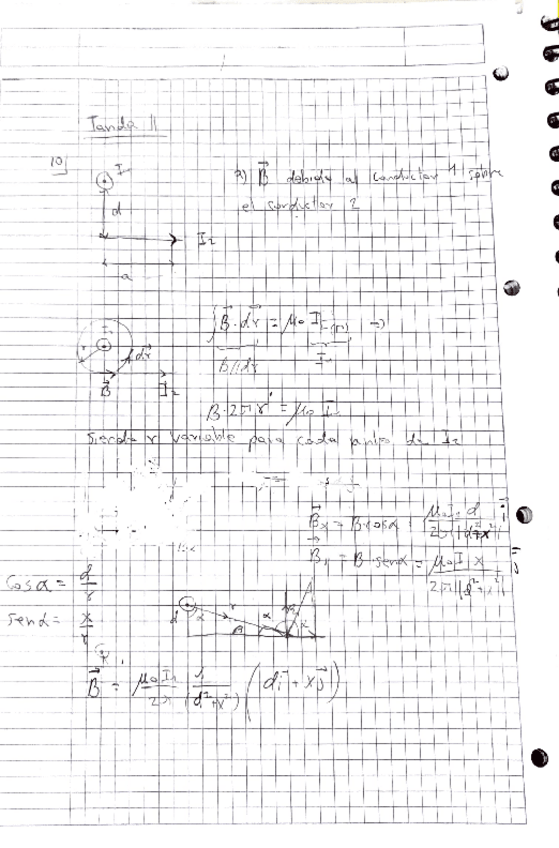 Tanda 11
10)
I₁
a) B⃗ debido al conductor 1 sobre
el conductor 2
d
I₂
a
I₁
r
dr⃗
B⃗
I₂
∫ B⃗ · dr⃗ = μ₀ I (Γ) ⇒
B // dr
I₁
B · 2π r = μ₀ I₁
Siendo r variable para cada punto de I₂
B⃗x = B · cosα = μ₀ I₁ d / 2π (d² + x²) i⃗
B = B · senα = μ₀ I x / 2π (d² + x²) j⃗
cos α = d/r
sen α = x/r
d α r α α
B⃗ = μ₀ I₁ / 2π · 1 / (d² + x²) (d i⃗ + x j⃗)